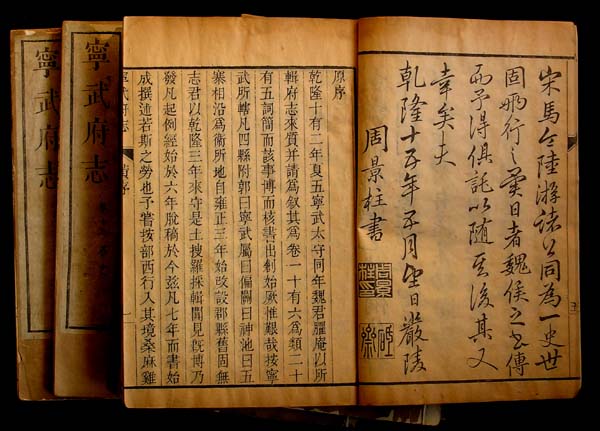 宋馬令陸游諸公同為一史世
行之異日者魏侯之書傳
而予得俱託以隨其後其又
幸矣夫
乾隆十五年五月望日嚴陵
周景柱書
原序
乾隆十有二年夏五寧武太守同年魏君庵以所
輯府志來質并請爲叙其爲卷一十有六爲類二十
有五詞簡而該事博而核書出創始厥惟艱哉按寧
武所轄凡四縣附郭曰寧武屬曰偏關曰神池曰五
寨相沿爲衞所地自雍正三年始改設郡縣舊固無
志君以乾隆三年來守是土搜羅採輯聞見旣博乃
發凡起例經始於六年脫稿於今茲凡七年而書始
成撰述若斯之勞也予嘗按部西行入其境桑麻雞
寧武府志
序
一
寧武府志
寧武府志